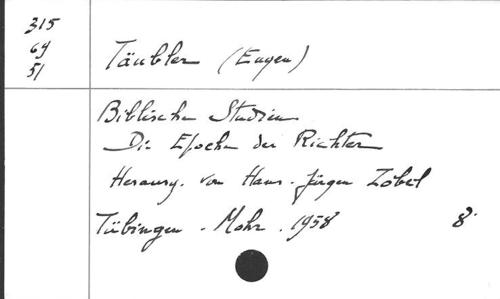 315
69
51
Täubler (Eugen)
Biblische Studien
Die Epoche der Richter
Herausg. von Hans-Jürgen Zobel
Tübingen - Mohr. 1958 8°